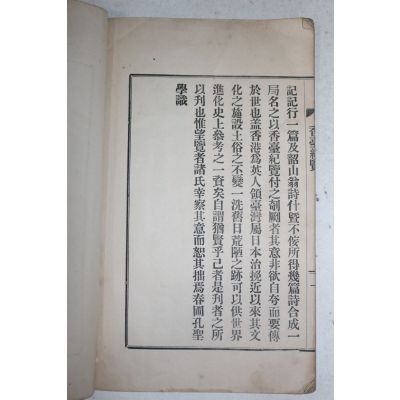 香臺紀覽
一
記記行一篇及韶山翁詩什曁不侫所得幾篇詩合成一
局名之以香臺紀覽付之剞劂者其意非欲自夸而要傳
於世也蓋香港爲英人領臺灣屬日本治挽近以來其文
化之施設土俗之不變一洗舊日荒陋之跡可以供世界
進化史上參考之一資矣自謂猶賢乎己者是刋者之所
以刋也惟望覽者諸氏幸察其意而恕其拙焉春圃孔聖
學識